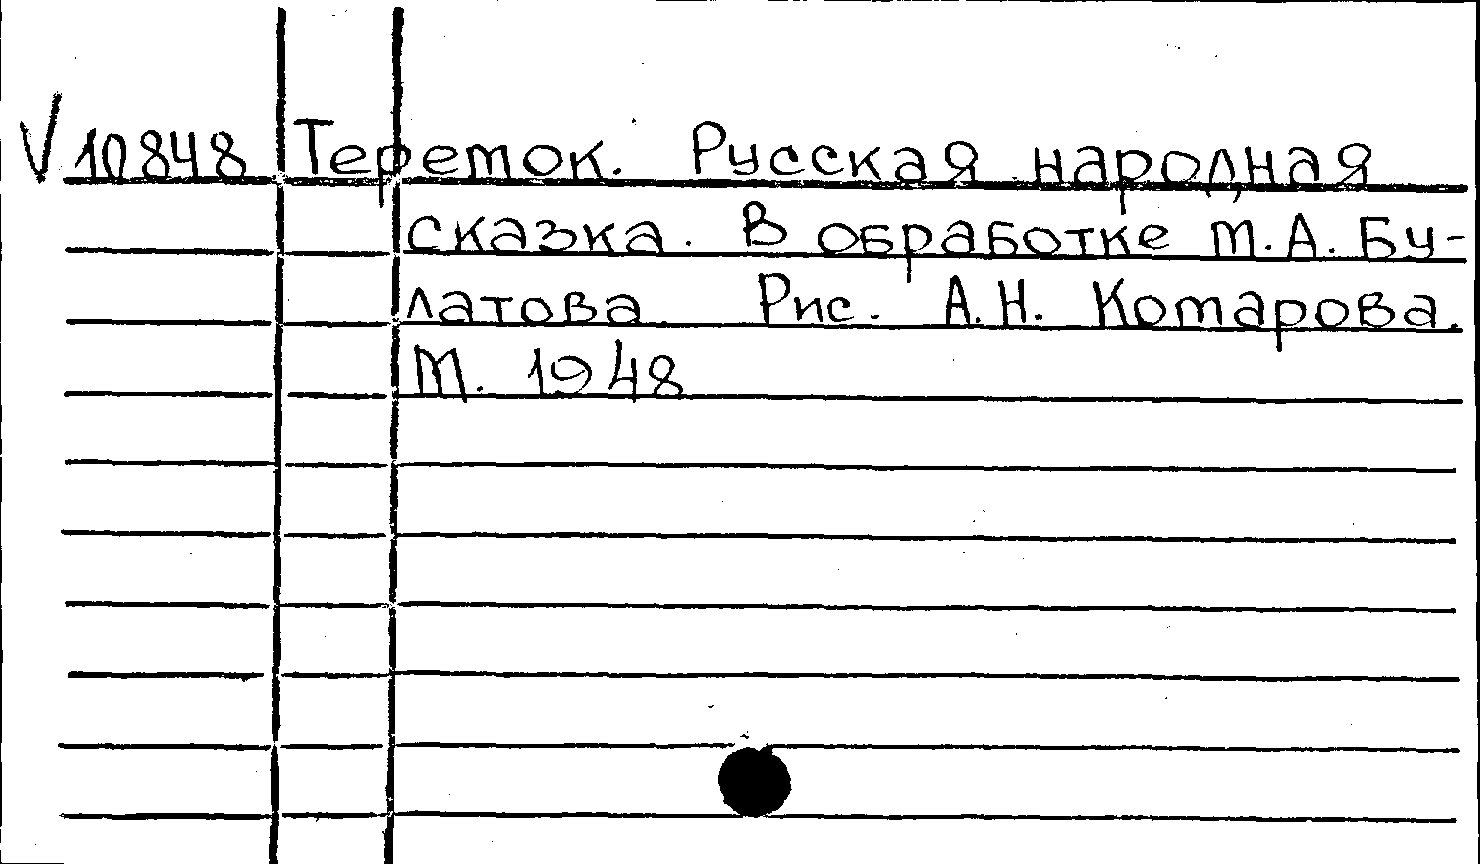 V 10848 Теремок. Русская народная
сказка. В обработке М.А. Бу-
латова Рис. А.Н. Комарова.
М. 1948